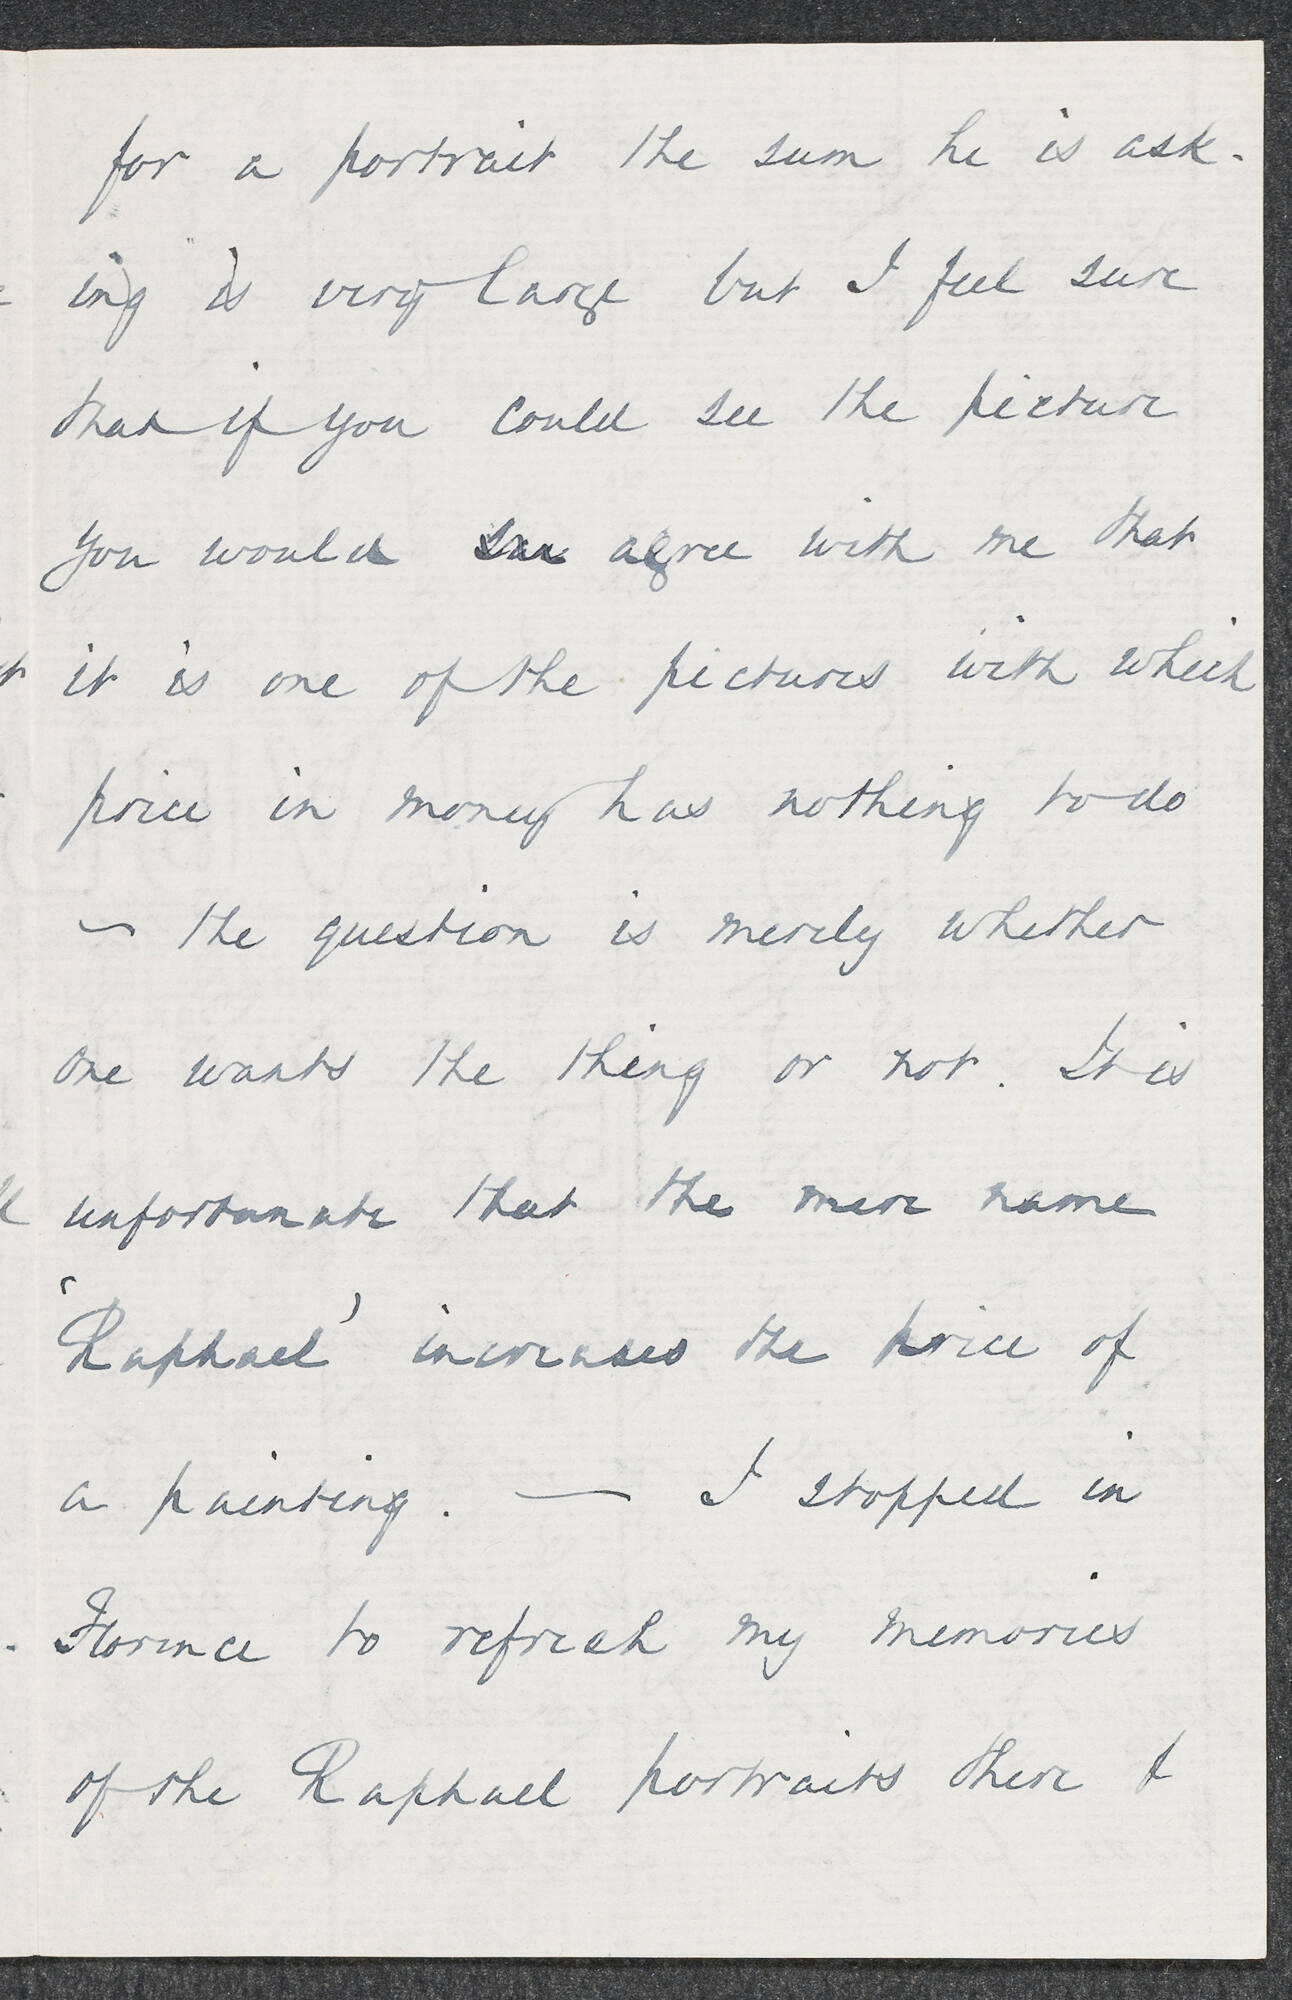 for a portrait the sum he is ask-
ing is very large but I feel sure
that if you could see the picture
you would agree with me that
it is one of the pictures with which
price in money has nothing to do
— the question is merely whether
one wants the thing or not. It is
unfortunate that the mere name
'Raphael' increases the price of
a painting. — I stopped in
Florence to refresh my memories
of the Raphael portraits there &